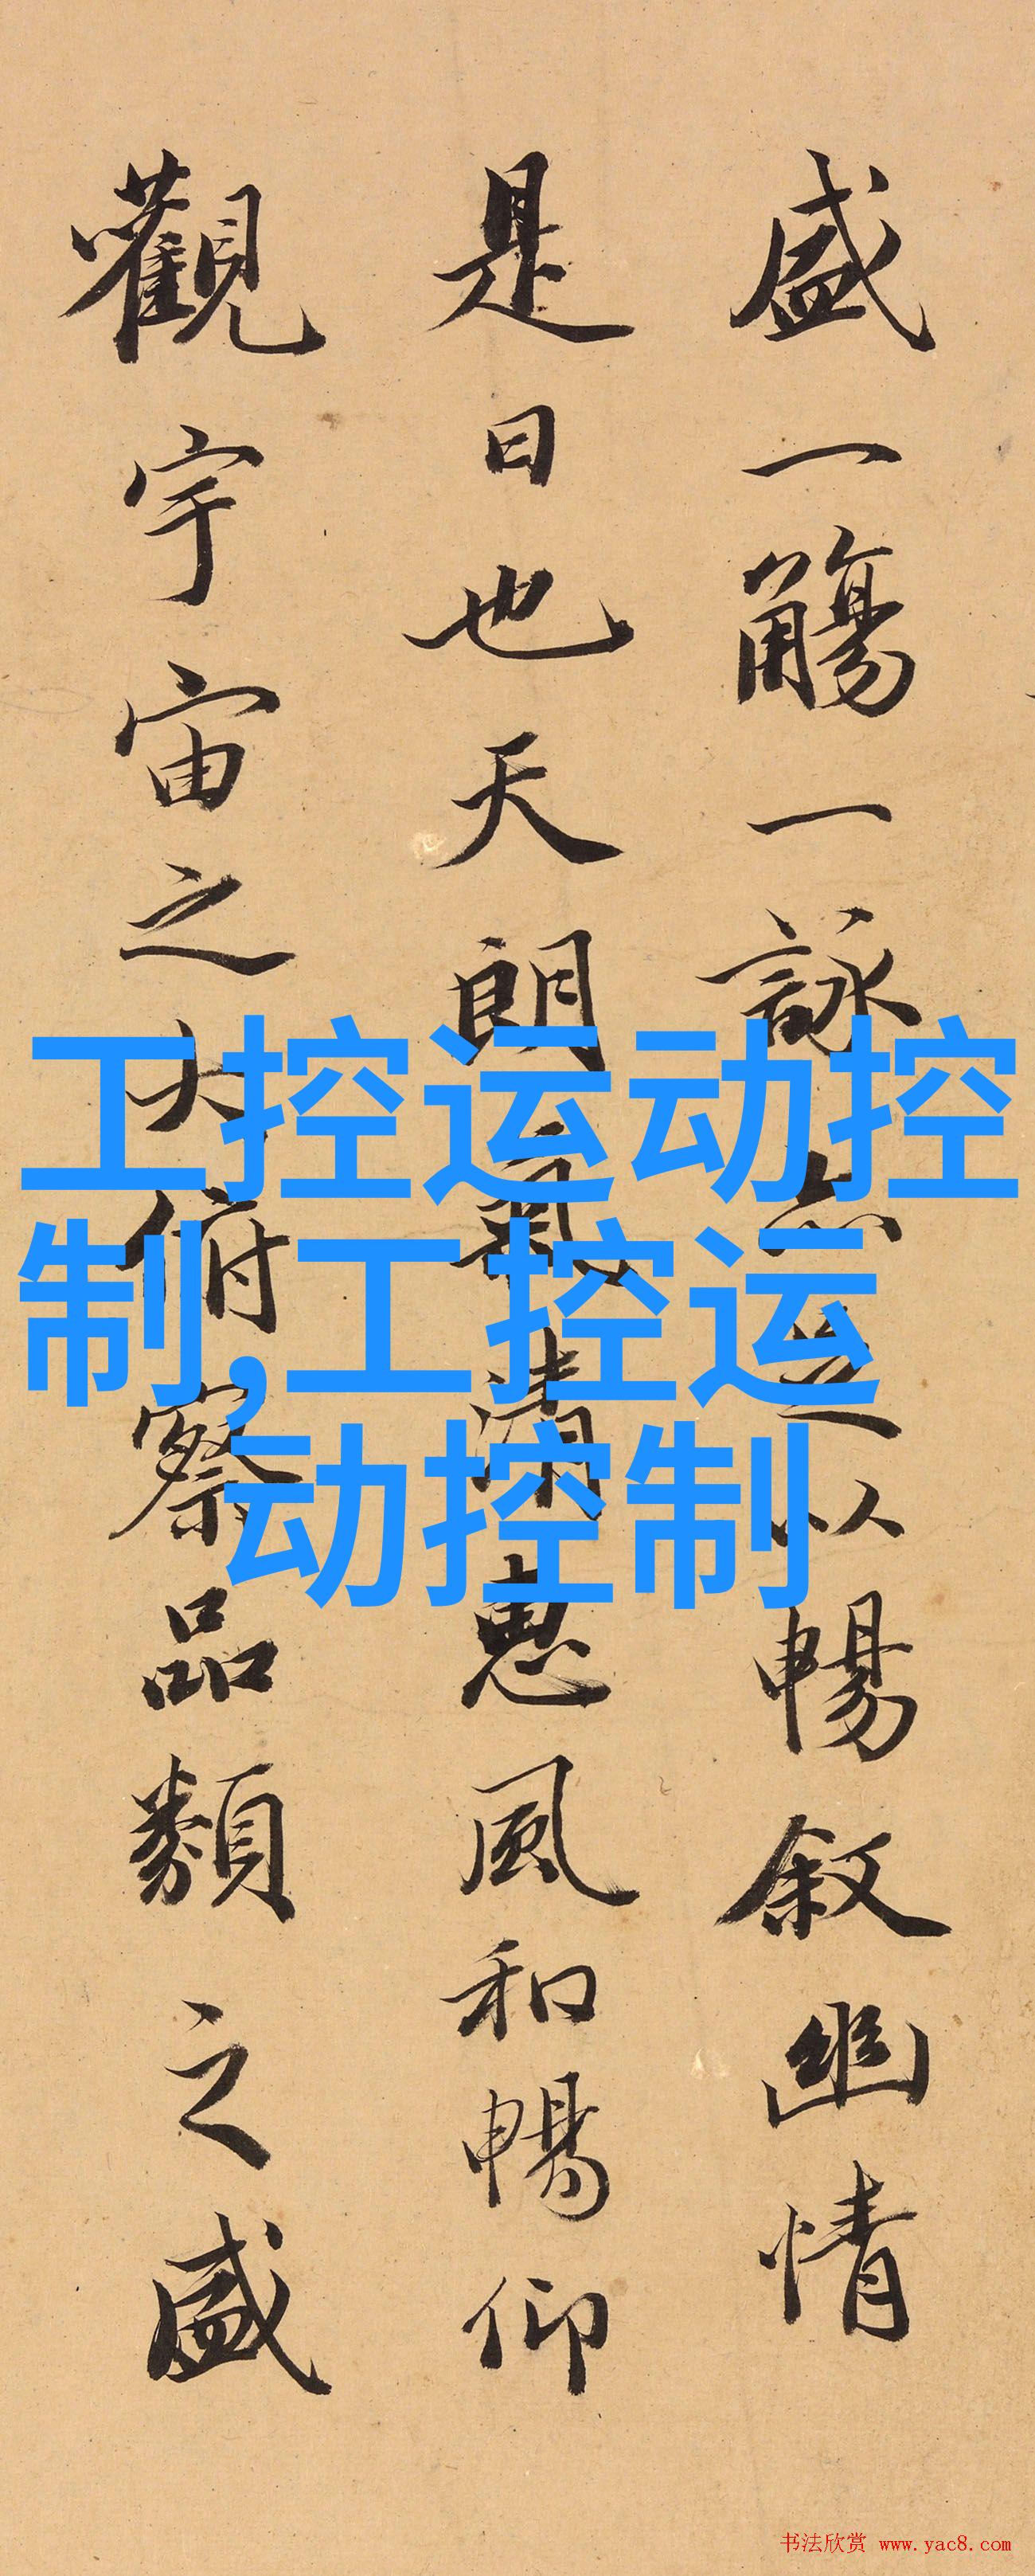 盛一觴一詠亦足以暢叙幽情
是日也天朗氣清惠風和暢仰
觀宇宙之大俯察品類之盛
工控运动控
制,工控运
动控制
书法欣赏 www.yac8.com